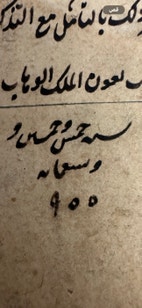 ذلك بالتأمل مع التذكر
بعون الملك الوهاب
سنه خمس وخمسين و
وتسعمايه
٩٥٥